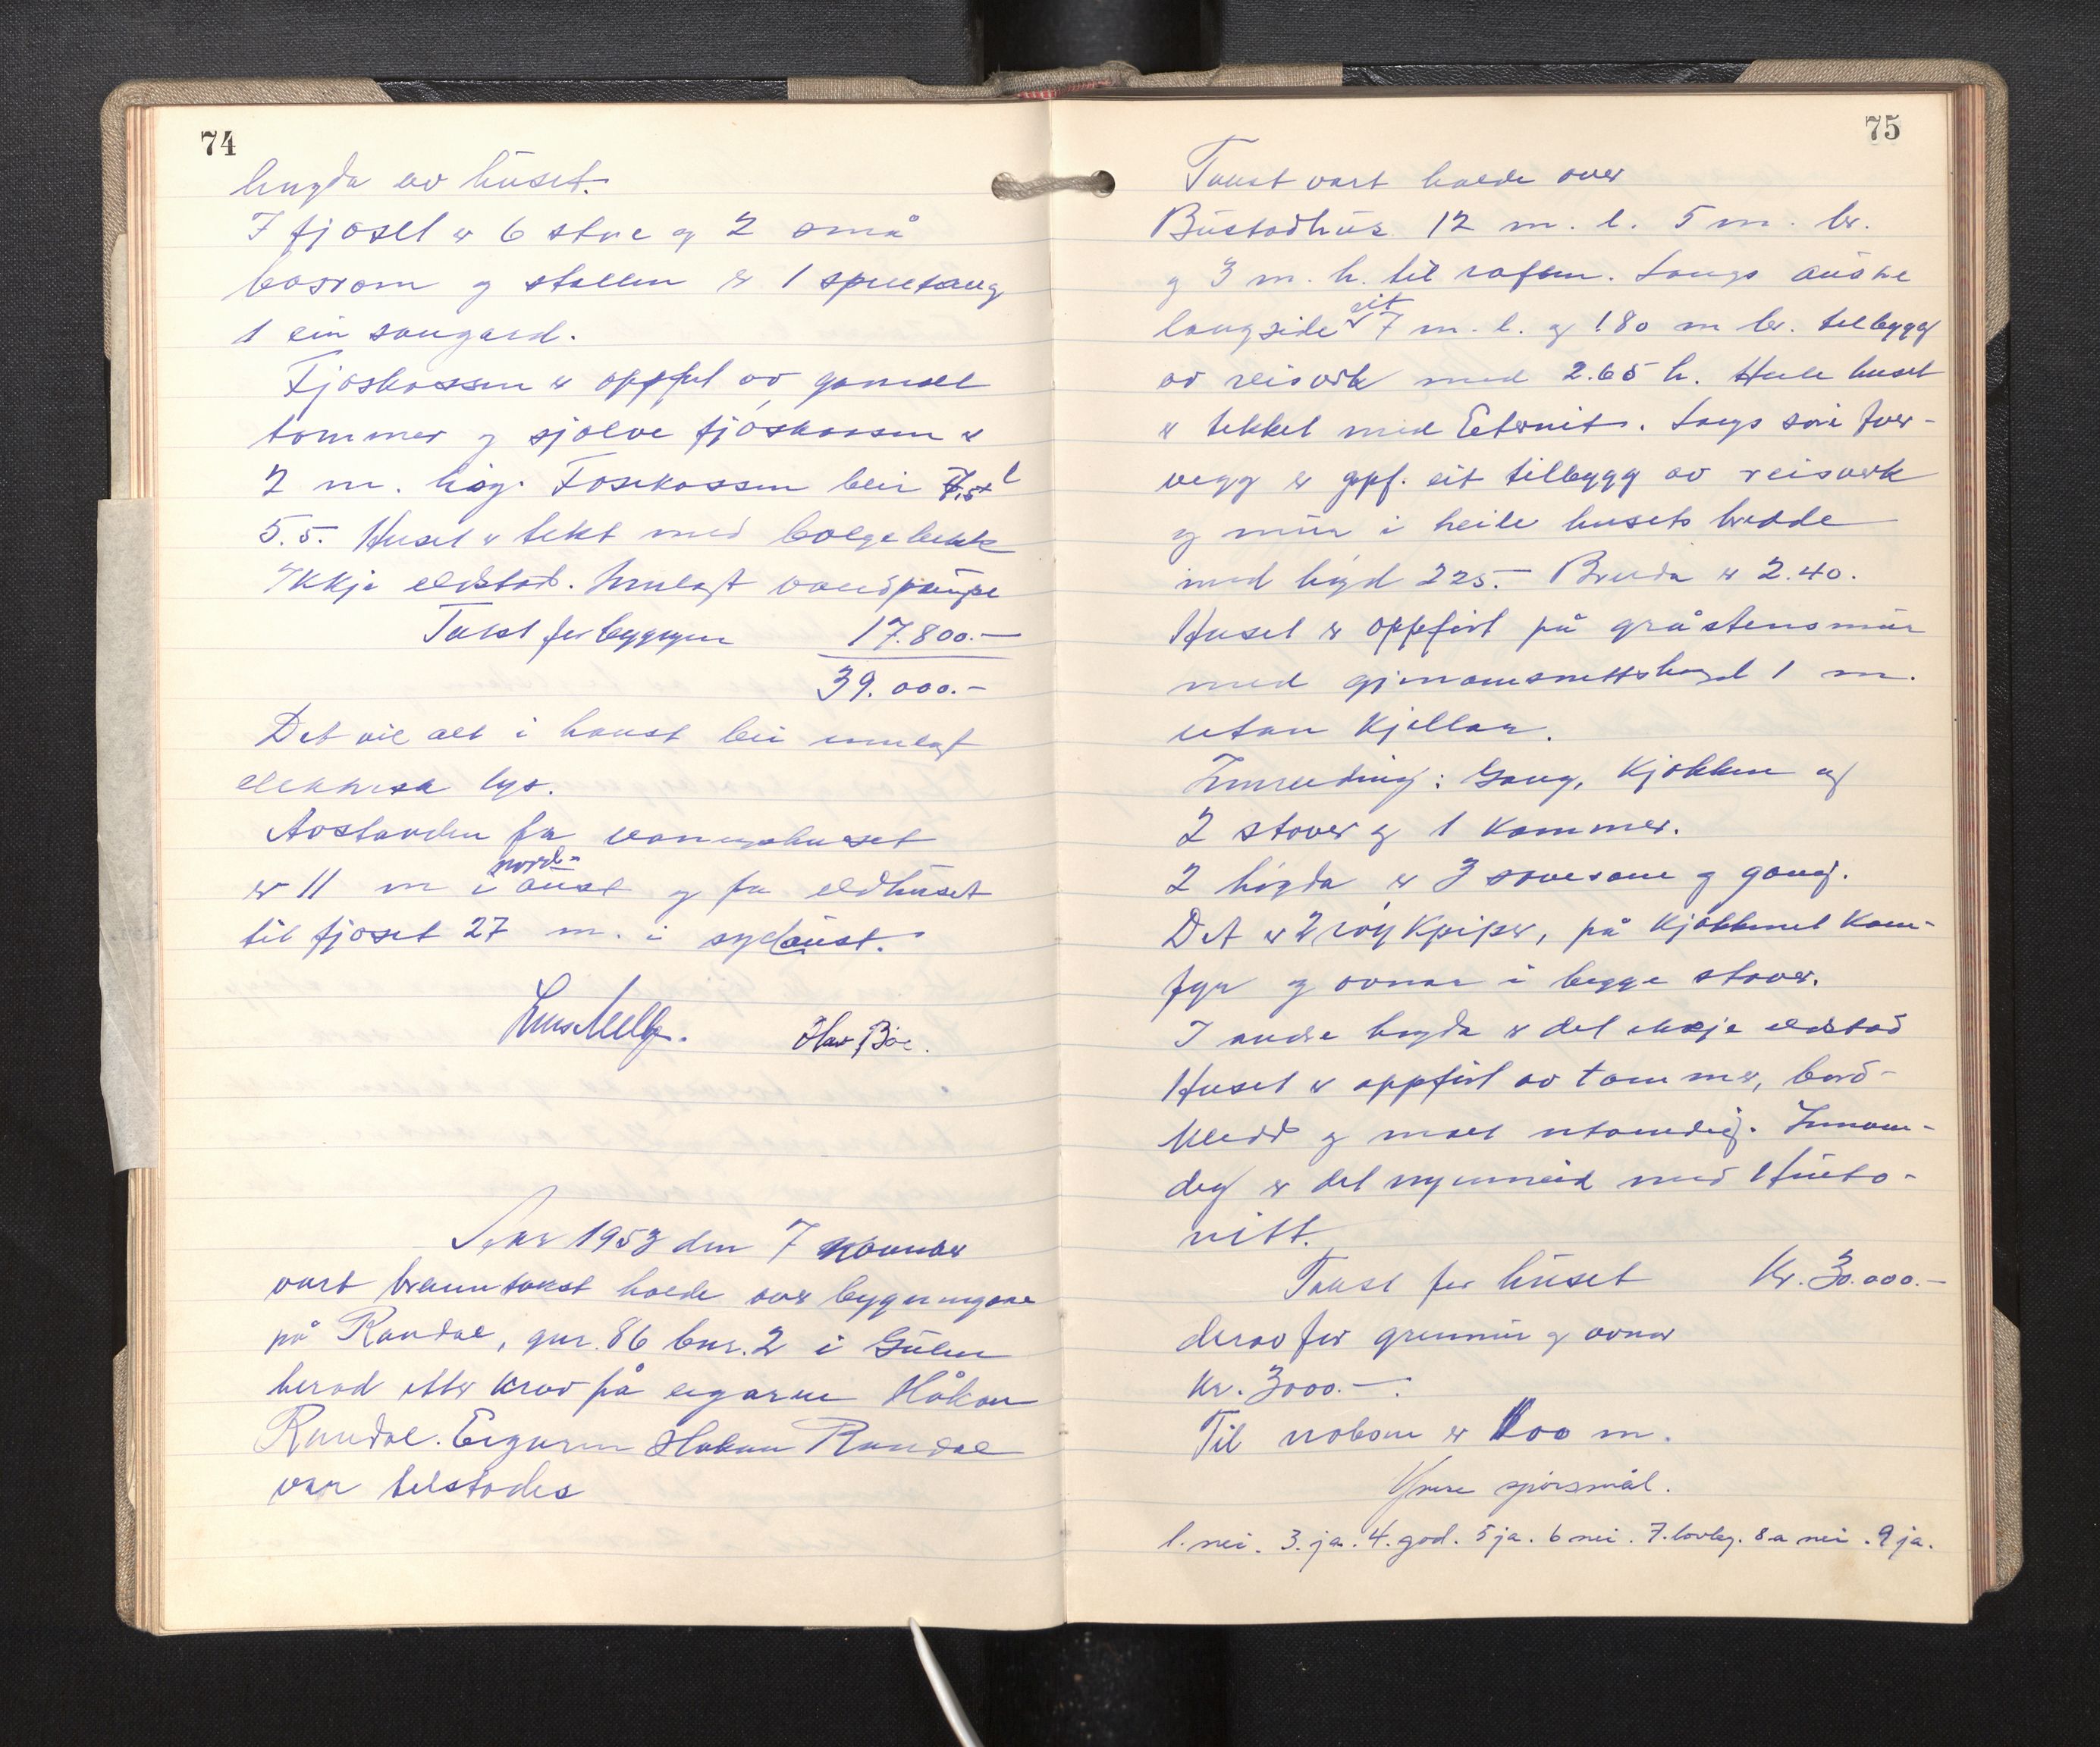 74
lengda av huset.
I fjoset er 6 store og 2 små
båsrom og stallen er 1 spiltaug
1 ein saugard.
Fjøskassen er oppført av gamalt
tømmer og sjølve fjøskassen er
2 m. høg. Fjøskassen blir 7,5 x
5.5. Huset er tekt med bølgeblekk
Ikkje eldstad. Innlagt vand
Takst for byggingen 17.800.-
39.000.-
Det vil alt i haust bli innlagt
elektrisk lys.
Avstanden fra vaningshuset
nord-
er 11 m i aust og fra eldhuset
til fjøset 27 m. i sydaust.
Olav Bøe.
År 1953 den 7 november
vart branntakst halde over bygningane
på Randal, gnr. 86 bnr. 2 i Gulen
herad etter krav på eigaren Håkon
Randal. Eigaren Håkon Randal
var tilstades
75
Takst vart halde over
Bustadhus 12 m. l. 5 m. br.
og 3 m. h. til rafsen. Langs austre
eit
langside er 7 m. l. og 1.80 m br. tilbygg
av reisverk med 2.65 h. Heile huset
er tekket med Eternit. Langs søre tver-
vegg er oppf. eit tilbygg av reisverk
og mur i heile husets bredde
med høgd 225.- Breidda er 2.40.
Huset er oppført på gråstensmur
med gjennomsnittshøgd 1 m.
utan kjellar.
Innreding: Gang, kjøkken og
2 stover og 1 kammer.
2 høgda er 3 soverom og gang.
Det er 2 røykpiper, på kjøkkenet kom-
fyr og ovnar i begge stover.
I andre høgda er det ikkje eldstad
Huset er oppført av tømmer, bord-
kledd og malt utvendig. Innven-
dig er det nyinnreid med Hunto-
nitt.
Takst for huset Kr. 30.000.-
derav for grunnmur og ovnar
Kr. 3000.-.
Til naboen er 100 m.
Ymse spørsmål.
1. nei. 3. ja. 4. god. 5 ja. 6 nei. 7. lovleg. 8.a nei. 9 ja.